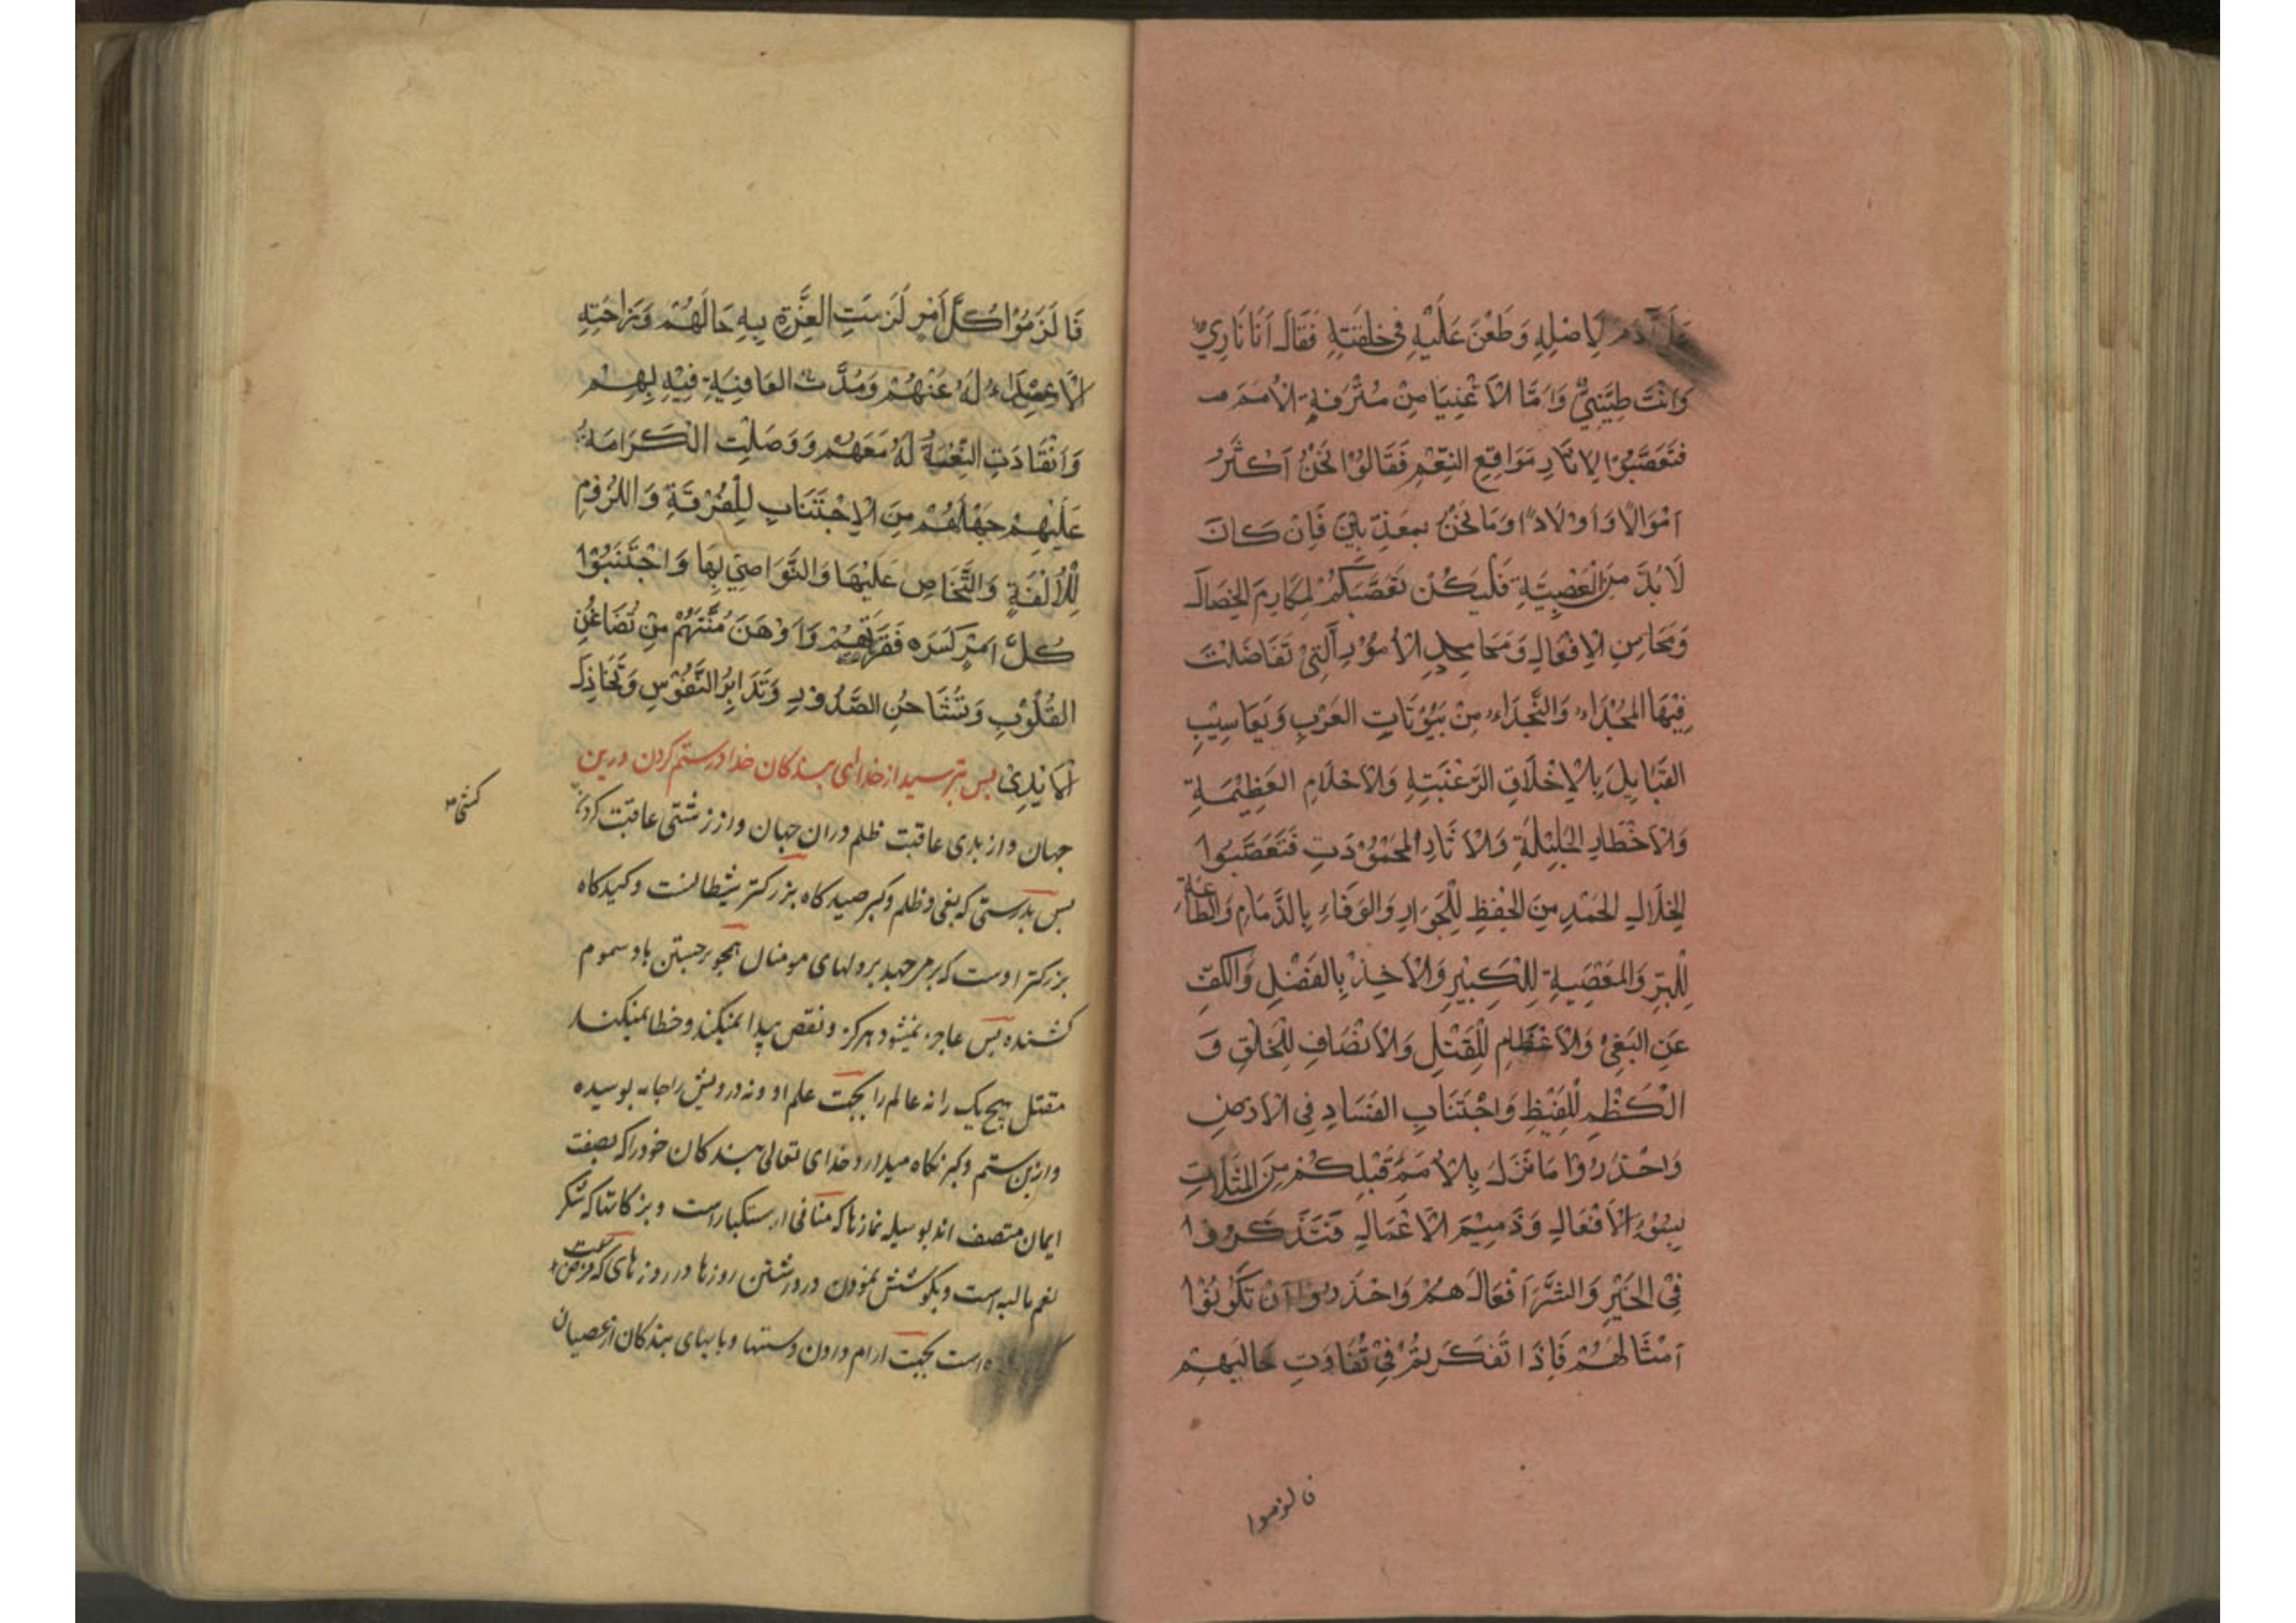 عَلَى آدَمَ لِاَصْلِهِ وَطَعْنَ عَلَيْهِ فِى خِلْقَتِهِ فَقَالَ اَنَا نَارِيٌّ
وَاَنْتَ طِيْنِيٌّ وَاَمَّا الْاَغْنِيَا مِنْ مُتْرَفَةِ الْاُمَمِ
فَتَعَصَّبُوْا لِاٰثَارِ مَوَاقِعِ النِّعَمِ فَقَالُوْا نَحْنُ اَكْثَرُ
اَمْوَالًا وَاَوْلَادًا وَمَا نَحْنُ بِمُعَذَّبِيْنَ فَاِنْ كَانَ
لَا بُدَّ مِنَ الْعَصَبِيَّةِ فَلْيَكُنْ تَعَصُّبُكُمْ لِمَكَارِمِ الْخِصَالِ
وَمَحَاسِنِ الْاَفْعَالِ وَمَحَامِدِ الْاُمُوْرِ الَّتِىْ تَفَاضَلَتْ
فِيْهَا الْمُجَدَاءُ وَالنُّجَدَاءُ مِنْ بُيُوْتَاتِ الْعَرَبِ وَيَعَاسِيْبِ
الْقَبَايِلِ بِالْاَخْلَاقِ الرَّغْبَتِهِ وَالْاَحْلَامِ الْعَظِيْمَةِ
وَالْاَخْطَارِ الْجَلِيْلَةِ وَالْاٰثَارِ الْمَحْمُوْدَتِ فَتَعَصَّبُوا
لِخِلَالِ الْحَمْدِ مِنَ الْحِفْظِ لِلْجِوَارِ وَالْوَفَاءِ بِالذِّمَامِ وَالطَّاعَةِ
لِلْبِرِّ وَالْمَعْصِيَةِ لِلْكِبْيْرِ وَالْاَخِذِ بِالْفَضْلِ وَالْكَفِّ
عَنِ الْبَغْىِ وَالْاَعْظَامِ لِلْقَتْلِ وَالْاِنْصَافِ لِلْخَلْقِ وَ
الْكَظْمِ لِلْغَيْظِ وَاجْتَنَابِ الْفَسَادِ فِى الْاَرْضِ
وَاحْذَرُوْا مَا نَزَلَ بِالْاُمَمِ قَبْلِكُمْ مِنَ الْمَثُلَاتِ
بِسُوْءِ الْاَفْعَالِ وَذَمِيْمِ الْاَعْمَالِ فَتَذَكَّرُوا
فِى الْخَيْرِ وَالشَّرِّ اَفْعَالَهُمْ وَاحْذَرُوْا اَنْ تَكُوْنُوْا
اَمْثَالَهُمْ فَاِذَا تَفَكَّرْتُمْ فِىْ تَفَاوَتِ حَالَيْهِمْ
فالزموا
فَالْزَمُوْا كُلَّ اَمْرٍ لَزِمَتِ الْعِزَّةِ بِهِ حَالَهُمْ وَزَاحَتِهِ
الْاَعْدَاءُ لَهُ عَنْهُمْ وَمُدَّتْ الْعَافِيَةِ فِيْهِ بِهِمْ
وَانْقَادَتِ النِّعْمَةُ لَهُ مَعَهُمْ وَوَصَلَتِ الْكَرَامَةُ
عَلَيْهِمْ حَبْلَهُمْ مِنَ الْاِجْتَنَابِ لِلْفُرْقَةِ وَاللُّزُوْمِ
لِلْاُلْفَةِ وَالتَّحَاضِ عَلَيْهَا وَالتَّوَاصِىْ بِهَا وَاجْتَنِبُوْا
كُلَّ اَمْرٍ كَسَرَهُ فَقْرَتَهُمْ وَاَوْهَنَ مُنَّتَهُمْ مِنْ تَضَاغُنِ
الْقُلُوْبِ وَتَشَاحُنِ الصُّدُوْرِ وَتَدَابِرُ النُّفُوْسِ وَتَخَاذُلِ
الْاَيْدِىْ بس بترسيد از خداى بندكان خدا درستم كردن درين
جهان و از بدى عاقبت ظلم دران جهان و از زشتى عاقبت كردن
كشى
بس بدرستى كه بغى و ظلم و كبر صيدكاه بزركتر شيطانست و كيدكاه
بزركتر اوست كه بر مى جهد بر دلهاى مومنان همچو برجستن باد سموم
كشنده بس عاجز نميشود هركز و نقص پيدا نميكند و خطا نميكند
مقتل هيچ يك را نه عالم را بجهت علم او و نه درويش را جامه بوسيده
و ازين ستم و كبر نكاه ميدارد خداى تعالى بندكان خود را كه بصفت
ايمان متصف اند بوسيله نمازها كه منافى استكبار است و بزكاتها كه شكر
نعم ماليه است و بكوشش نمودن در داشتن روزها در روزهاى كه فرض
است بجهت ارام دادن دستها و پابهاى بندكان از عصيان